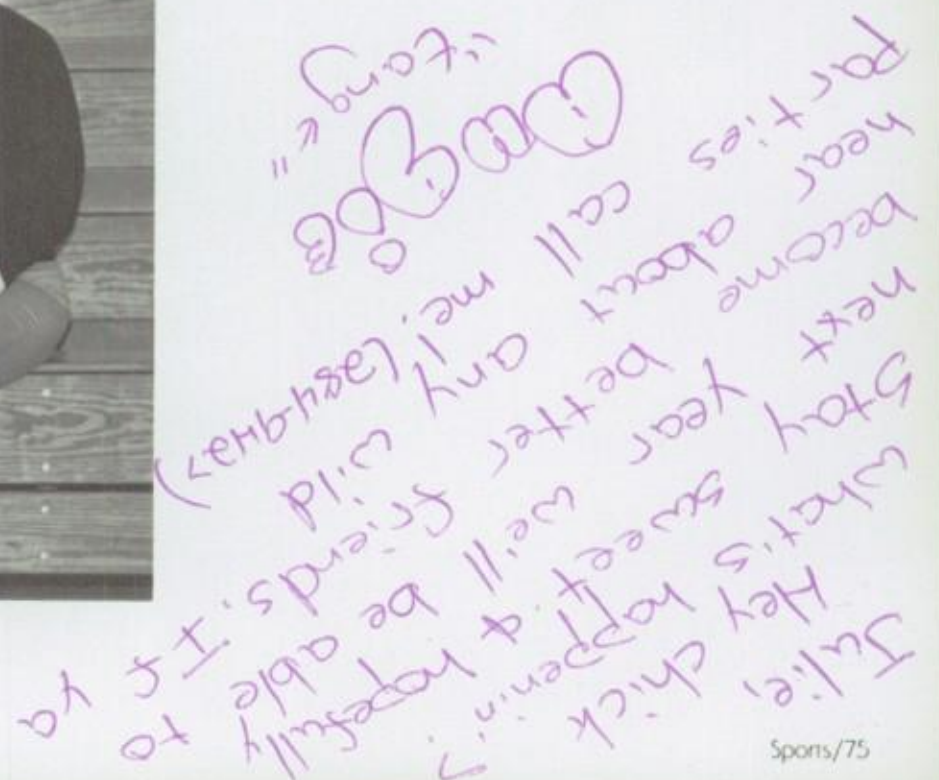 Julie,
Hey chick
what's happenin'?
Stay sweet & hopefully
next year we'll be able to
become better friends. If ya
hear about any wild
parties call me!
Sports/75